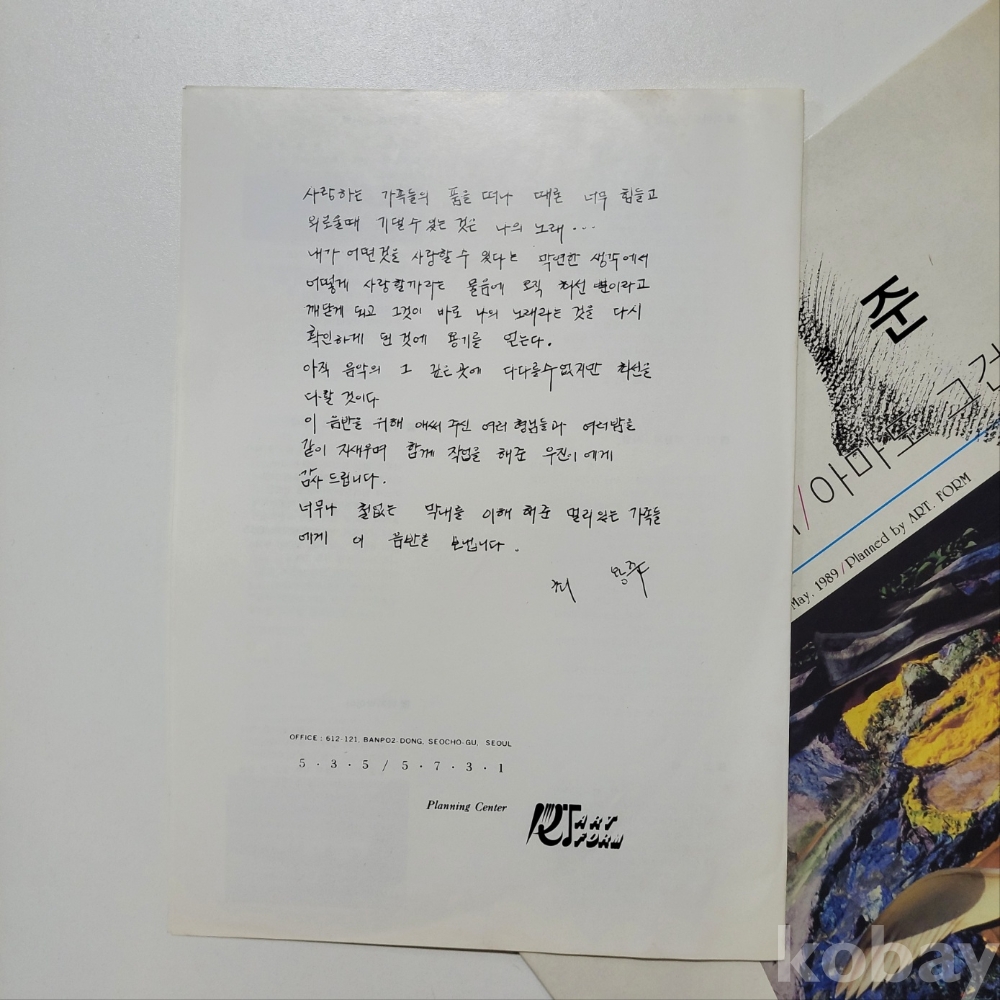 사랑하는 가족들의 품을 떠나 때론 너무 힘들고
외로울때 기댈수 있는 것은 나의 노래...
내가 어떤것을 사랑할 수 있다는 막연한 생각에서
어떻게 사랑할까라는 물음에 오직 최선 뿐이라고
깨닫게 되고 그것이 바로 나의 노래라는 것을 다시
확인하게 된 것에 용기를 얻는다.
아직 음악의 그 깊은곳에 다다를수없지만 최선을
다할 것이다
이 음반을 위해 애써주신 여러 형님들과 여러밤을
같이 지새우며 함께 작업을 해준 우진이에게
감사드립니다.
너무나 철없는 막내를 이해해준 멀리있는 가족들
에게 이 음반을 보냅니다.
최
OFFICE : 612-121, BANPO2-DONG, SEOCHO-GU, SEOUL
5 · 3 · 5 / 5 · 7 · 3 · 1
Planning Center
ART FORM
준
/아마도 그건
May, 1989 / Planned by ART. FORM
kobay